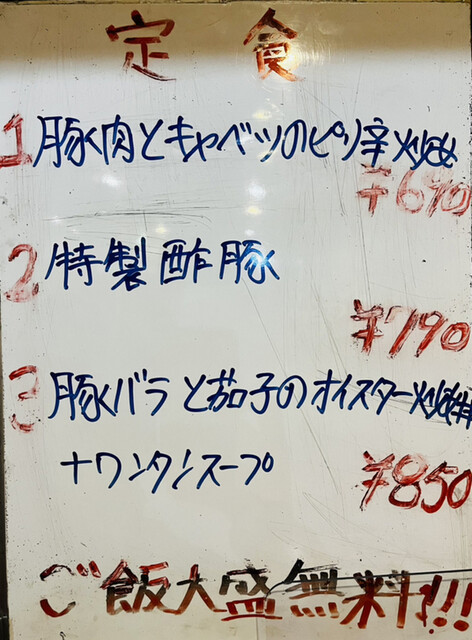 定食
1 豚肉とキャベツのピリ辛炒め
¥690
2 特製酢豚
¥790
3 豚バラと茄子のオイスター炒
+ワンタンスープ
¥850
ご飯大盛無料!!!